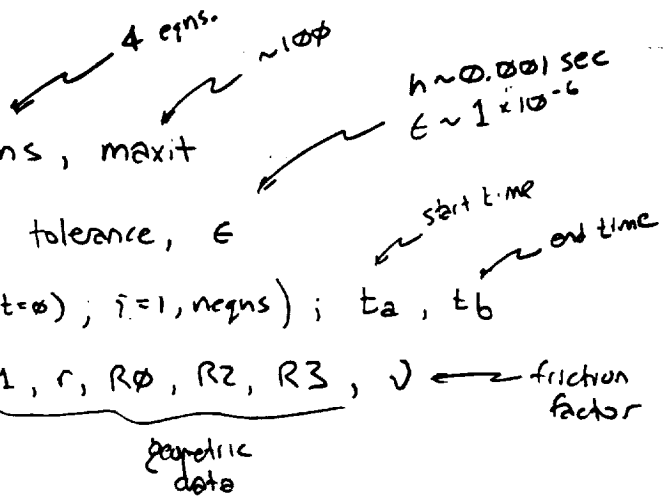 4 eqns.
~100
h ~ 0.001 sec
ϵ ~ 1 x 10^-6
ns, maxit
tolerance, ϵ
start time
end time
t=0) ; i=1, neqns) ; ta, tb
1, r, R0, R2, R3, ν ← friction factor
geometric
data